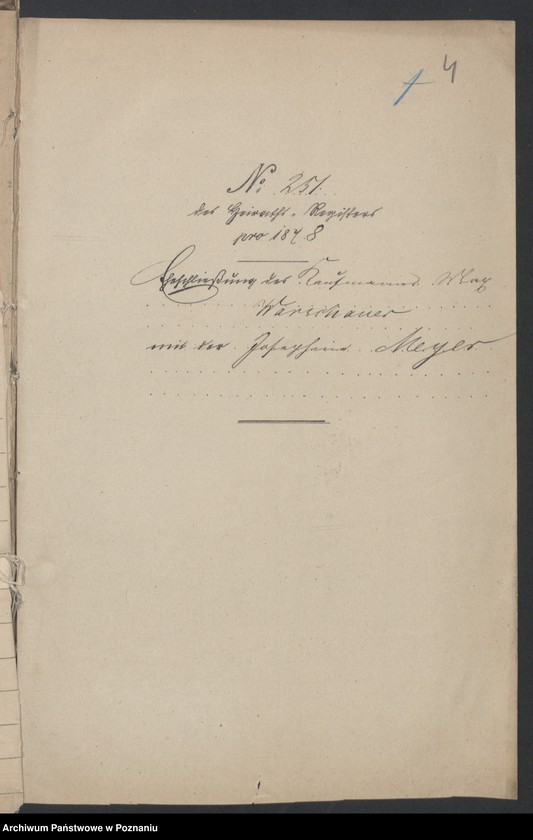 4
No. 251.
des Heiraths-Registers
pro 1878
Eheschließung des Kaufmanns Max
Warschauer
mit der Josephine Meyer
Archiwum Państwowe w Poznaniu